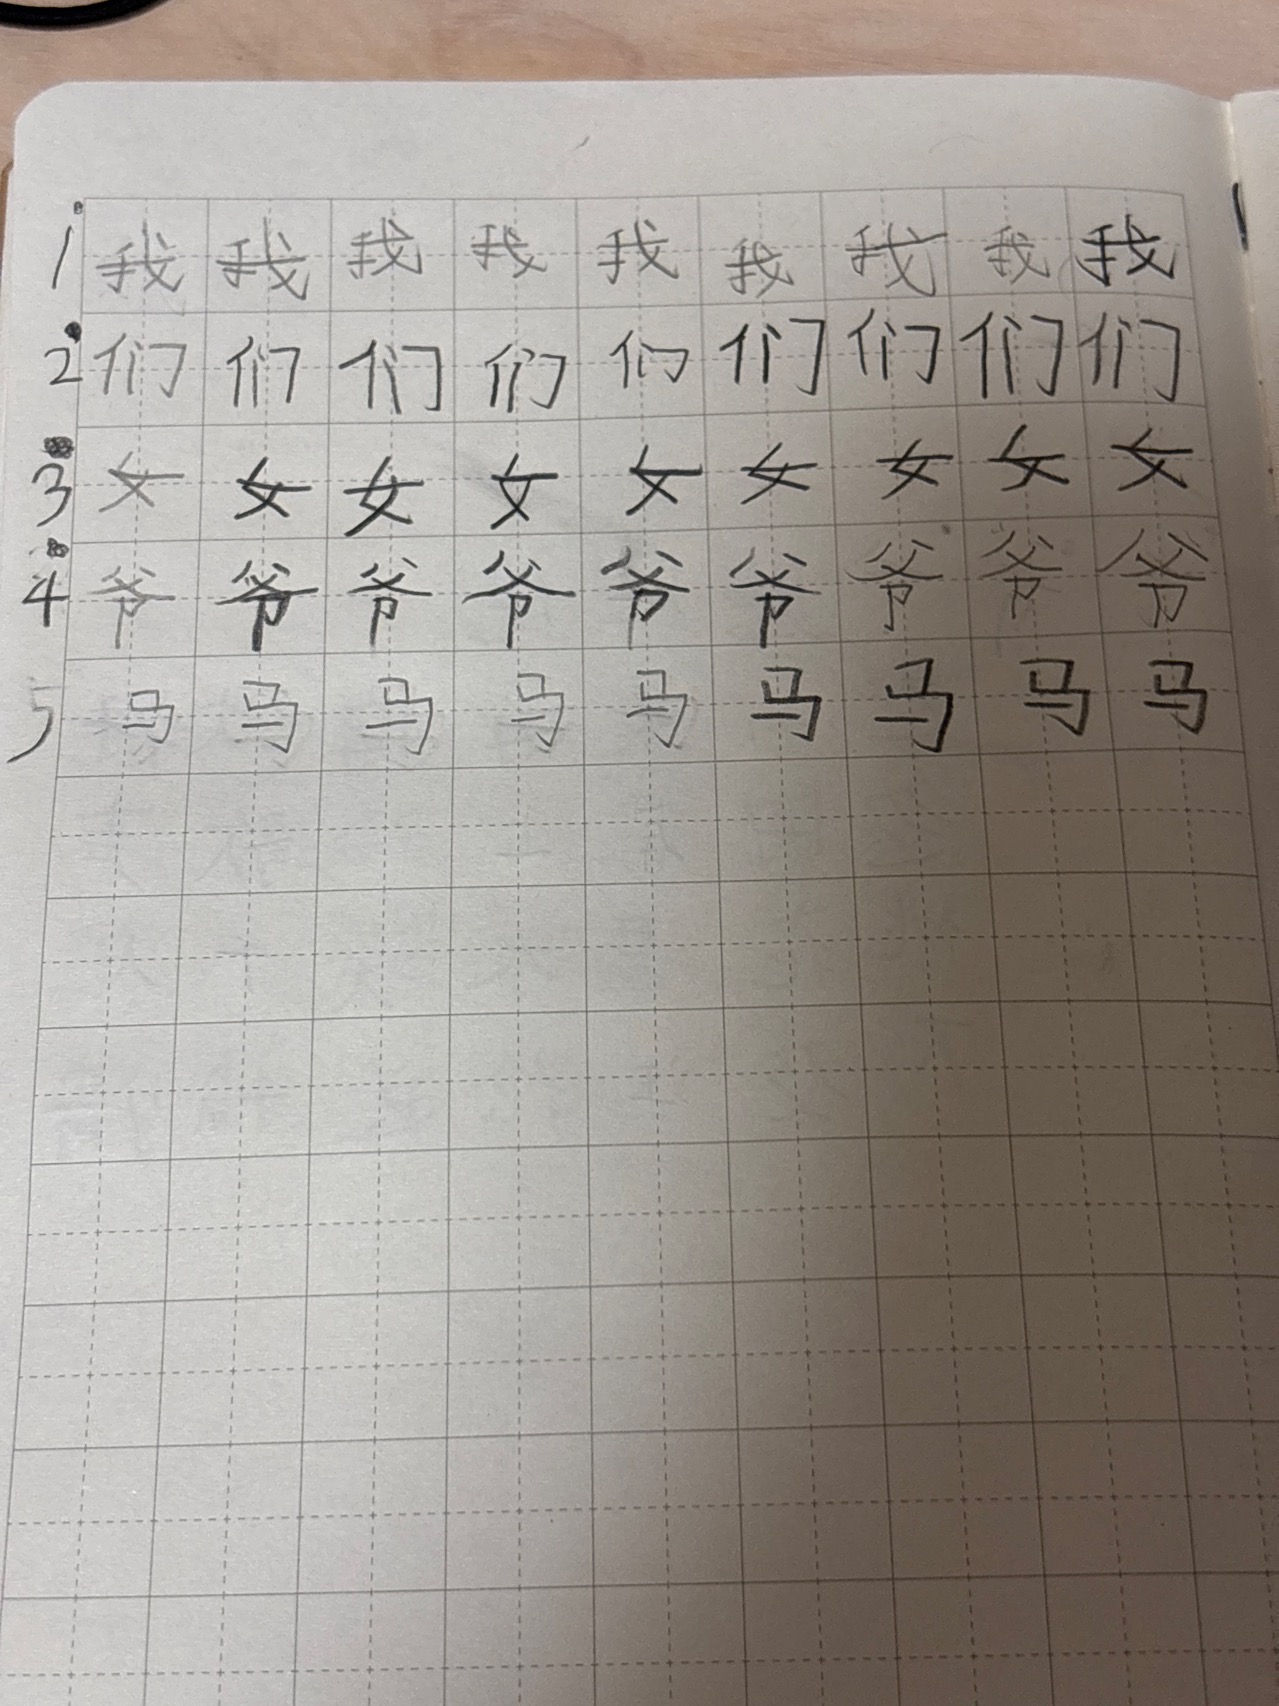 1 我 我 我 我 我 我 我 我 我
2 们 们 们 们 们 们 们 们 们
3 女 女 女 女 女 女 女 女 女
4 爷 爷 爷 爷 爷 爷 爷 爷 爷
5 马 马 马 马 马 马 马 马 马